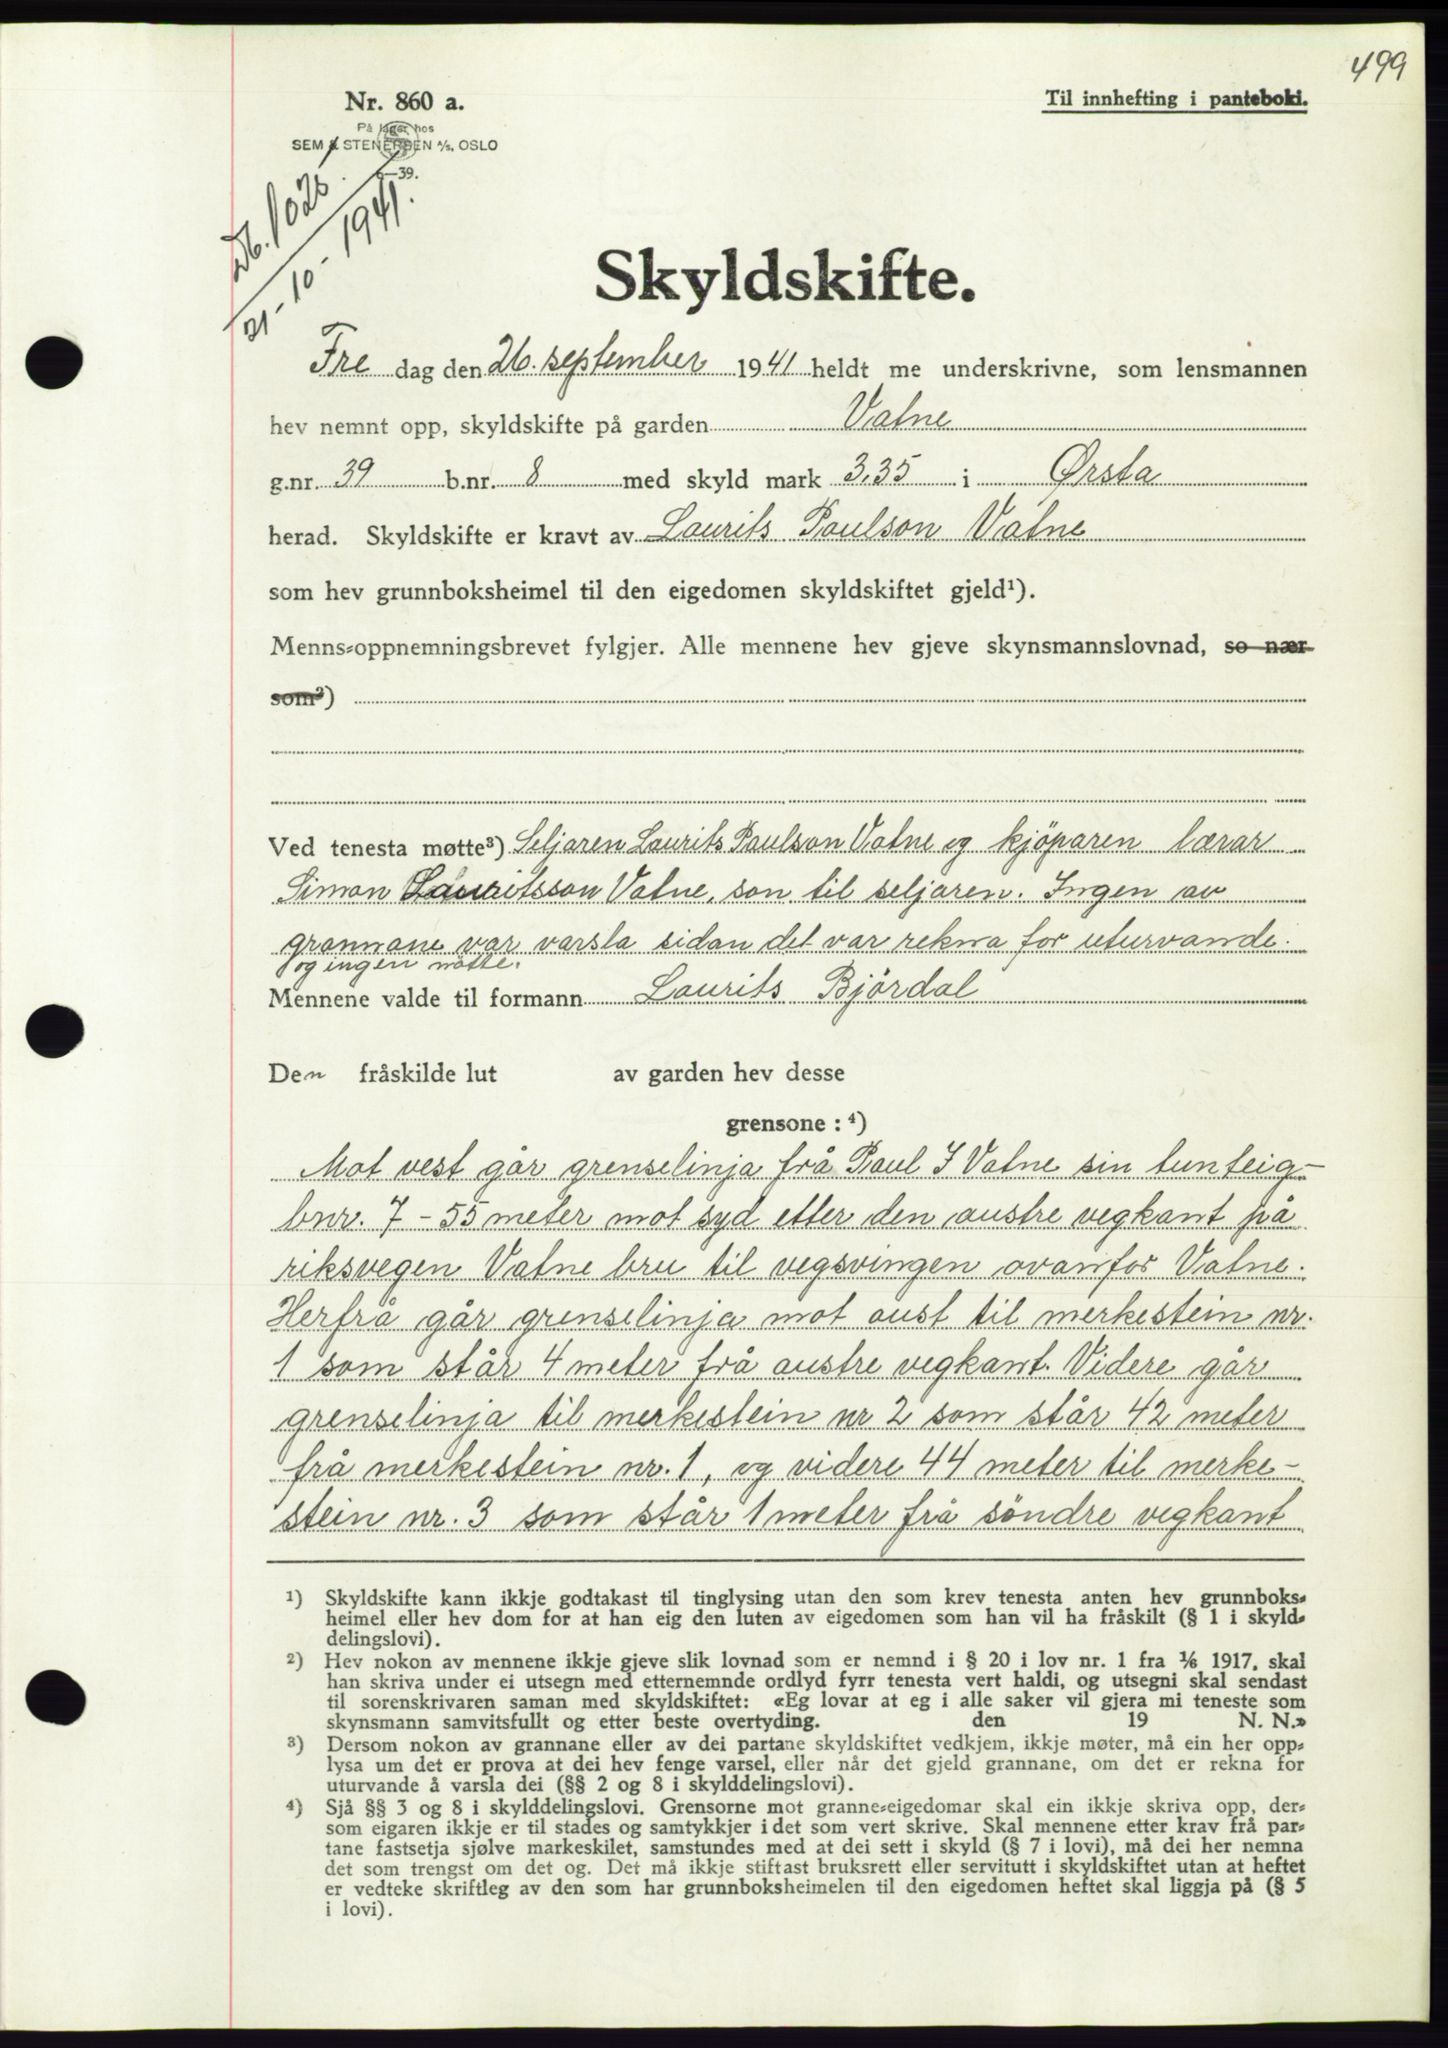 499
Nr. 860 a.
Til innhefting i panteboki.
På lager hos
SEM & STENERSEN A/S, OSLO
6—39.
Db. 1025
21-10-1941.
Skyldskifte.
Fre dag den 26. september 1941 heldt me underskrivne, som lensmannen
hev nemnt opp, skyldskifte på garden Vatne
g.nr. 39 b.nr. 8 med skyld mark 3,35 i Ørsta
herad. Skyldskifte er kravt av Laurits Paulson Vatne
som hev grunnboksheimel til den eigedomen skyldskiftet gjeld¹).
Menns-oppnemningsbrevet fylgjer. Alle mennene hev gjeve skynsmannslovnad, so nær
som²)
Ved tenesta møtte³) Seljaren Laurits Paulson Vatne og kjöparen lærar
Simon Lauritsson Vatne, son til seljaren. Ingen av
grannane var varsla sidan det var rekna for uturvande.
og ingen møtte.
Mennene valde til formann Laurits Björdal
Den fråskilde lut av garden hev desse
grensone: ⁴)
Mot vest går grenselinja frå Paul J Vatne sin tunteig-
bnr. 7 - 55 meter mot syd etter den austre vegkant på
riksvegen Vatne bru til vegsvingen ovanfor Vatne.
Herfrå går grenselinja mot aust til merkestein nr.
1 som står 4 meter frå austre vegkant. Videre går
grenselinja til merkestein nr 2 som står 42 meter
frå merkestein nr. 1, og videre 44 meter til merke-
stein nr. 3 som står 1 meter frå söndre vegkant
¹) Skyldskifte kann ikkje godtakast til tinglysing utan den som krev tenesta anten hev grunnboks-
heimel eller hev dom for at han eig den luten av eigedomen som han vil ha fråskilt (§ 1 i skyld-
delingslovi).
²) Hev nokon av mennene ikkje gjeve slik lovnad som er nemnd i § 20 i lov nr. 1 fra 1/6 1917, skal
han skriva under ei utsegn med etternemnde ordlyd fyrr tenesta vert haldi, og utsegni skal sendast
til sorenskrivaren saman med skyldskiftet: «Eg lovar at eg i alle saker vil gjera mi teneste som
skynsmann samvitsfullt og etter beste overtyding. den 19 N. N.»
³) Dersom nokon av grannane eller av dei partane skyldskiftet vedkjem, ikkje møter, må ein her opp-
lysa um det er prova at dei hev fenge varsel, eller når det gjeld grannane, om det er rekna for
uturvande å varsla dei (§§ 2 og 8 i skylddelingslovi).
⁴) Sjå §§ 3 og 8 i skylddelingslovi. Grensorne mot granne-eigedomar skal ein ikkje skriva opp, der-
som eigaren ikkje er til stades og samtykkjer i det som vert skrive. Skal mennene etter krav frå par-
tane fastsetja sjølve markeskilet, samstundes med at dei sett i skyld (§ 7 i lovi), må dei her nemna
det som trengst om det og. Det må ikkje stiftast bruksrett eller servitutt i skyldskiftet utan at heftet
er vedteke skriftleg av den som har grunnboksheimelen til den eigedomen heftet skal liggja på (§ 5
i lovi).